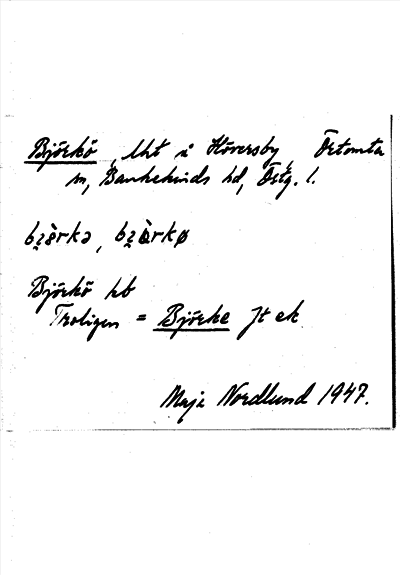 Björkö, lht i Höversby, Örtomta
sn, Bankekinds hd, Östg. l.
bjö̀rkə, bjö̀rkø
Björkö kb
Troligen = Björke Jt ek
Maja Nordlund 1947.